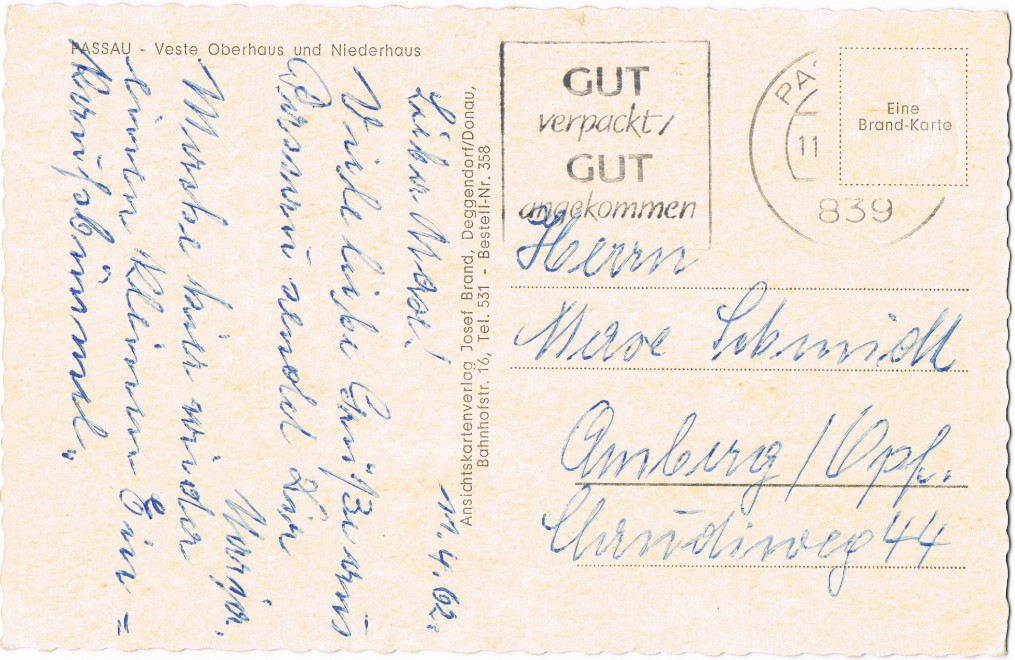 PASSAU - Veste Oberhaus und Niederhaus
Lieber Max!
11.4.62.
Viele liebe Grüße aus
Passau sendet Dir
Mache hier wieder
einen kleinen Ein=
kaufsbummel.
Ansichtskartenverlag Josef Brand, Deggendorf/Donau,
Bahnhofstr. 16, Tel. 531 - Bestell-Nr. 358
GUT
verpackt,
GUT
angekommen
PA
11
839
Eine
Brand-Karte
Herrn
Max Schmidt
Amberg/Opf.
44